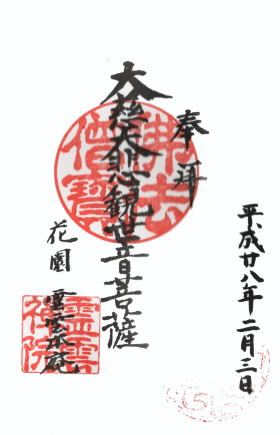 平成廿八年二月三日
奉拝
大慈大悲観世音菩薩
佛法
僧寶
花園
靈雲
禪院